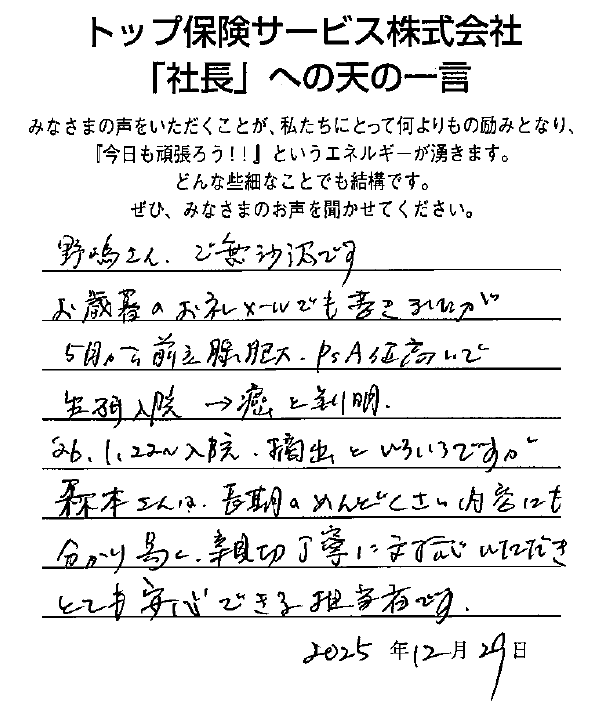 トップ保険サービス株式会社
「社長」への天の一言
みなさまの声をいただくことが、私たちにとって何よりもの励みとなり、
『今日も頑張ろう!!』というエネルギーが湧きます。
どんな些細なことでも結構です。
ぜひ、みなさまのお声を聞かせてください。
野嶋さん、ご無沙汰です
お歳暮のお礼メールでも書きましたが
5月から前立腺肥大、PSA値高いで
生研入院→癌と判明.
'26.1.22〜入院、摘出といろいろですが
森本さんは、長期のめんどくさい内容にも
分かり易く、親切丁寧に対応いただき
とても安心できる担当者です.
2025年12月29日